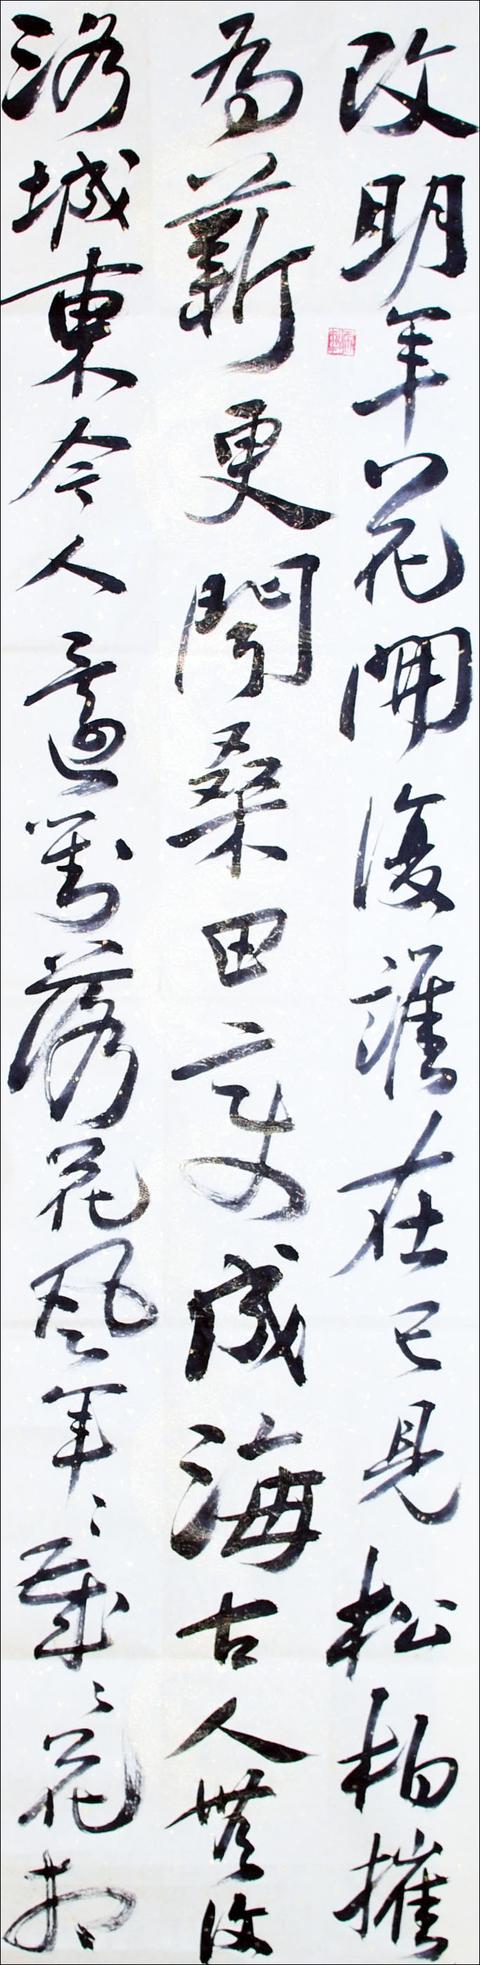 改明年花開復誰在已見松柏摧
為薪更聞桑田変成海古人無復
洛城東今人還對落花風年々歳々花相